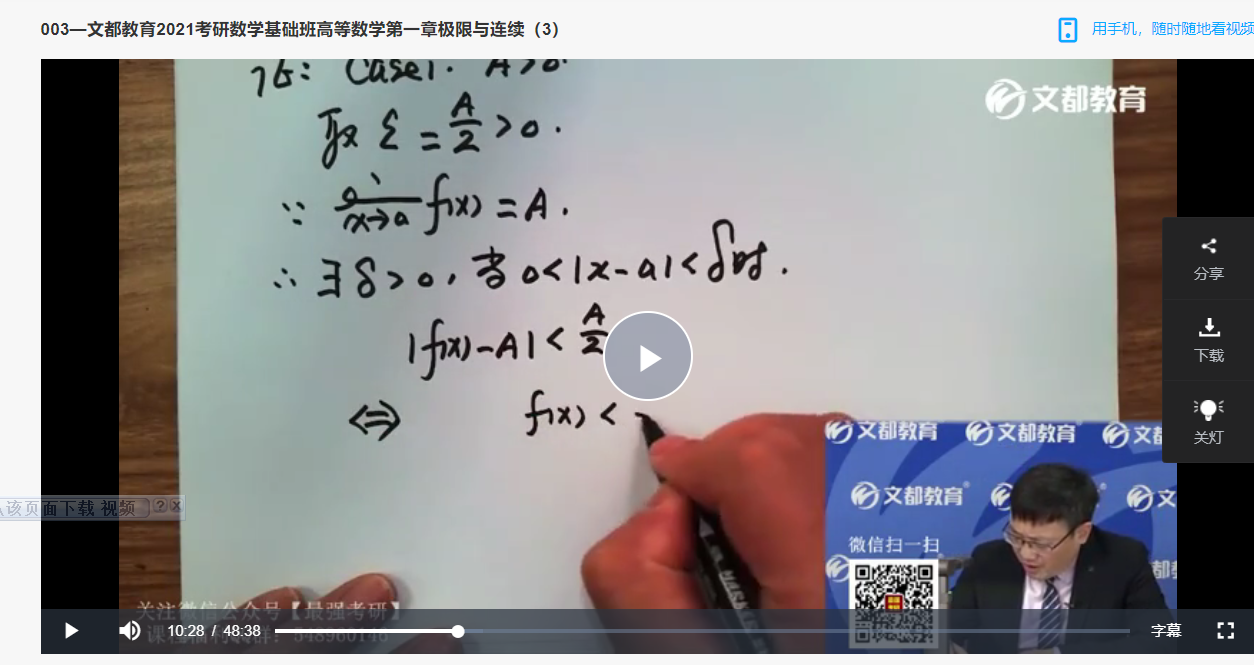 003—文都教育2021考研数学基础班高等数学第一章极限与连续（3）
用手机，随时随地看视频
文都教育
证: Case1. A>0.
取 ε = A/2 >0.
∵ lim x→a f(x) = A.
∴ ∃ δ>0, 当 0<|x-a|<δ时.
|f(x)-A| < A/2
⇔ f(x) <
分享
下载
关灯
该页面下载 视频
文都教育 文都教育 文
文都教育 文
微信扫一扫
都
关注微信公众号【最强考研】
10:28 / 48:38
字幕